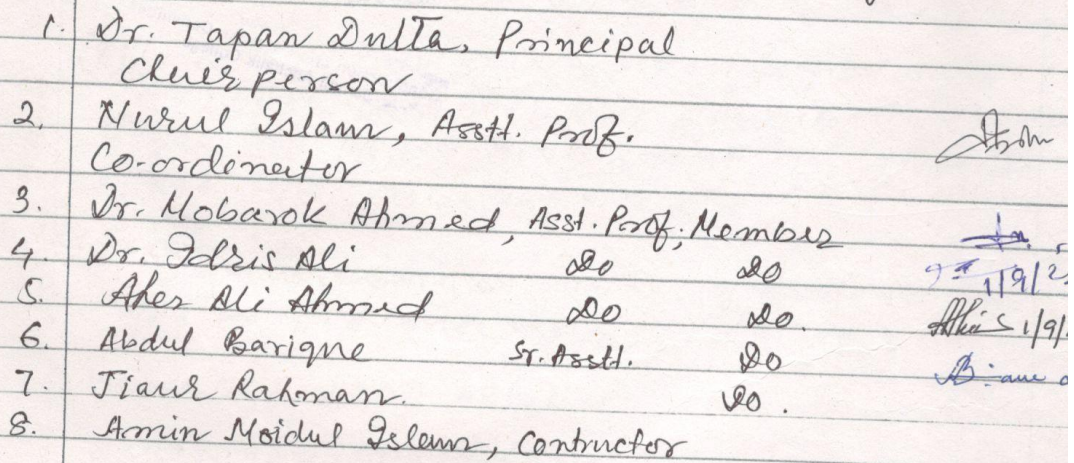 1. Dr. Tapan Dutta, Principal
Chairperson
2. Nurul Islam, Asstt. Prof.
Co-ordinator
3. Dr. Mobarok Ahmed, Asst. Prof, Member
4. Dr. Idris Ali Do Do
1/9/2
5. Aher Ali Ahmed Do Do.
1/9/
6. Abdul Barique Sr. Asstt. Do
7. Jiaur Rahman. Do.
8. Amin Moidul Islam, Contructor